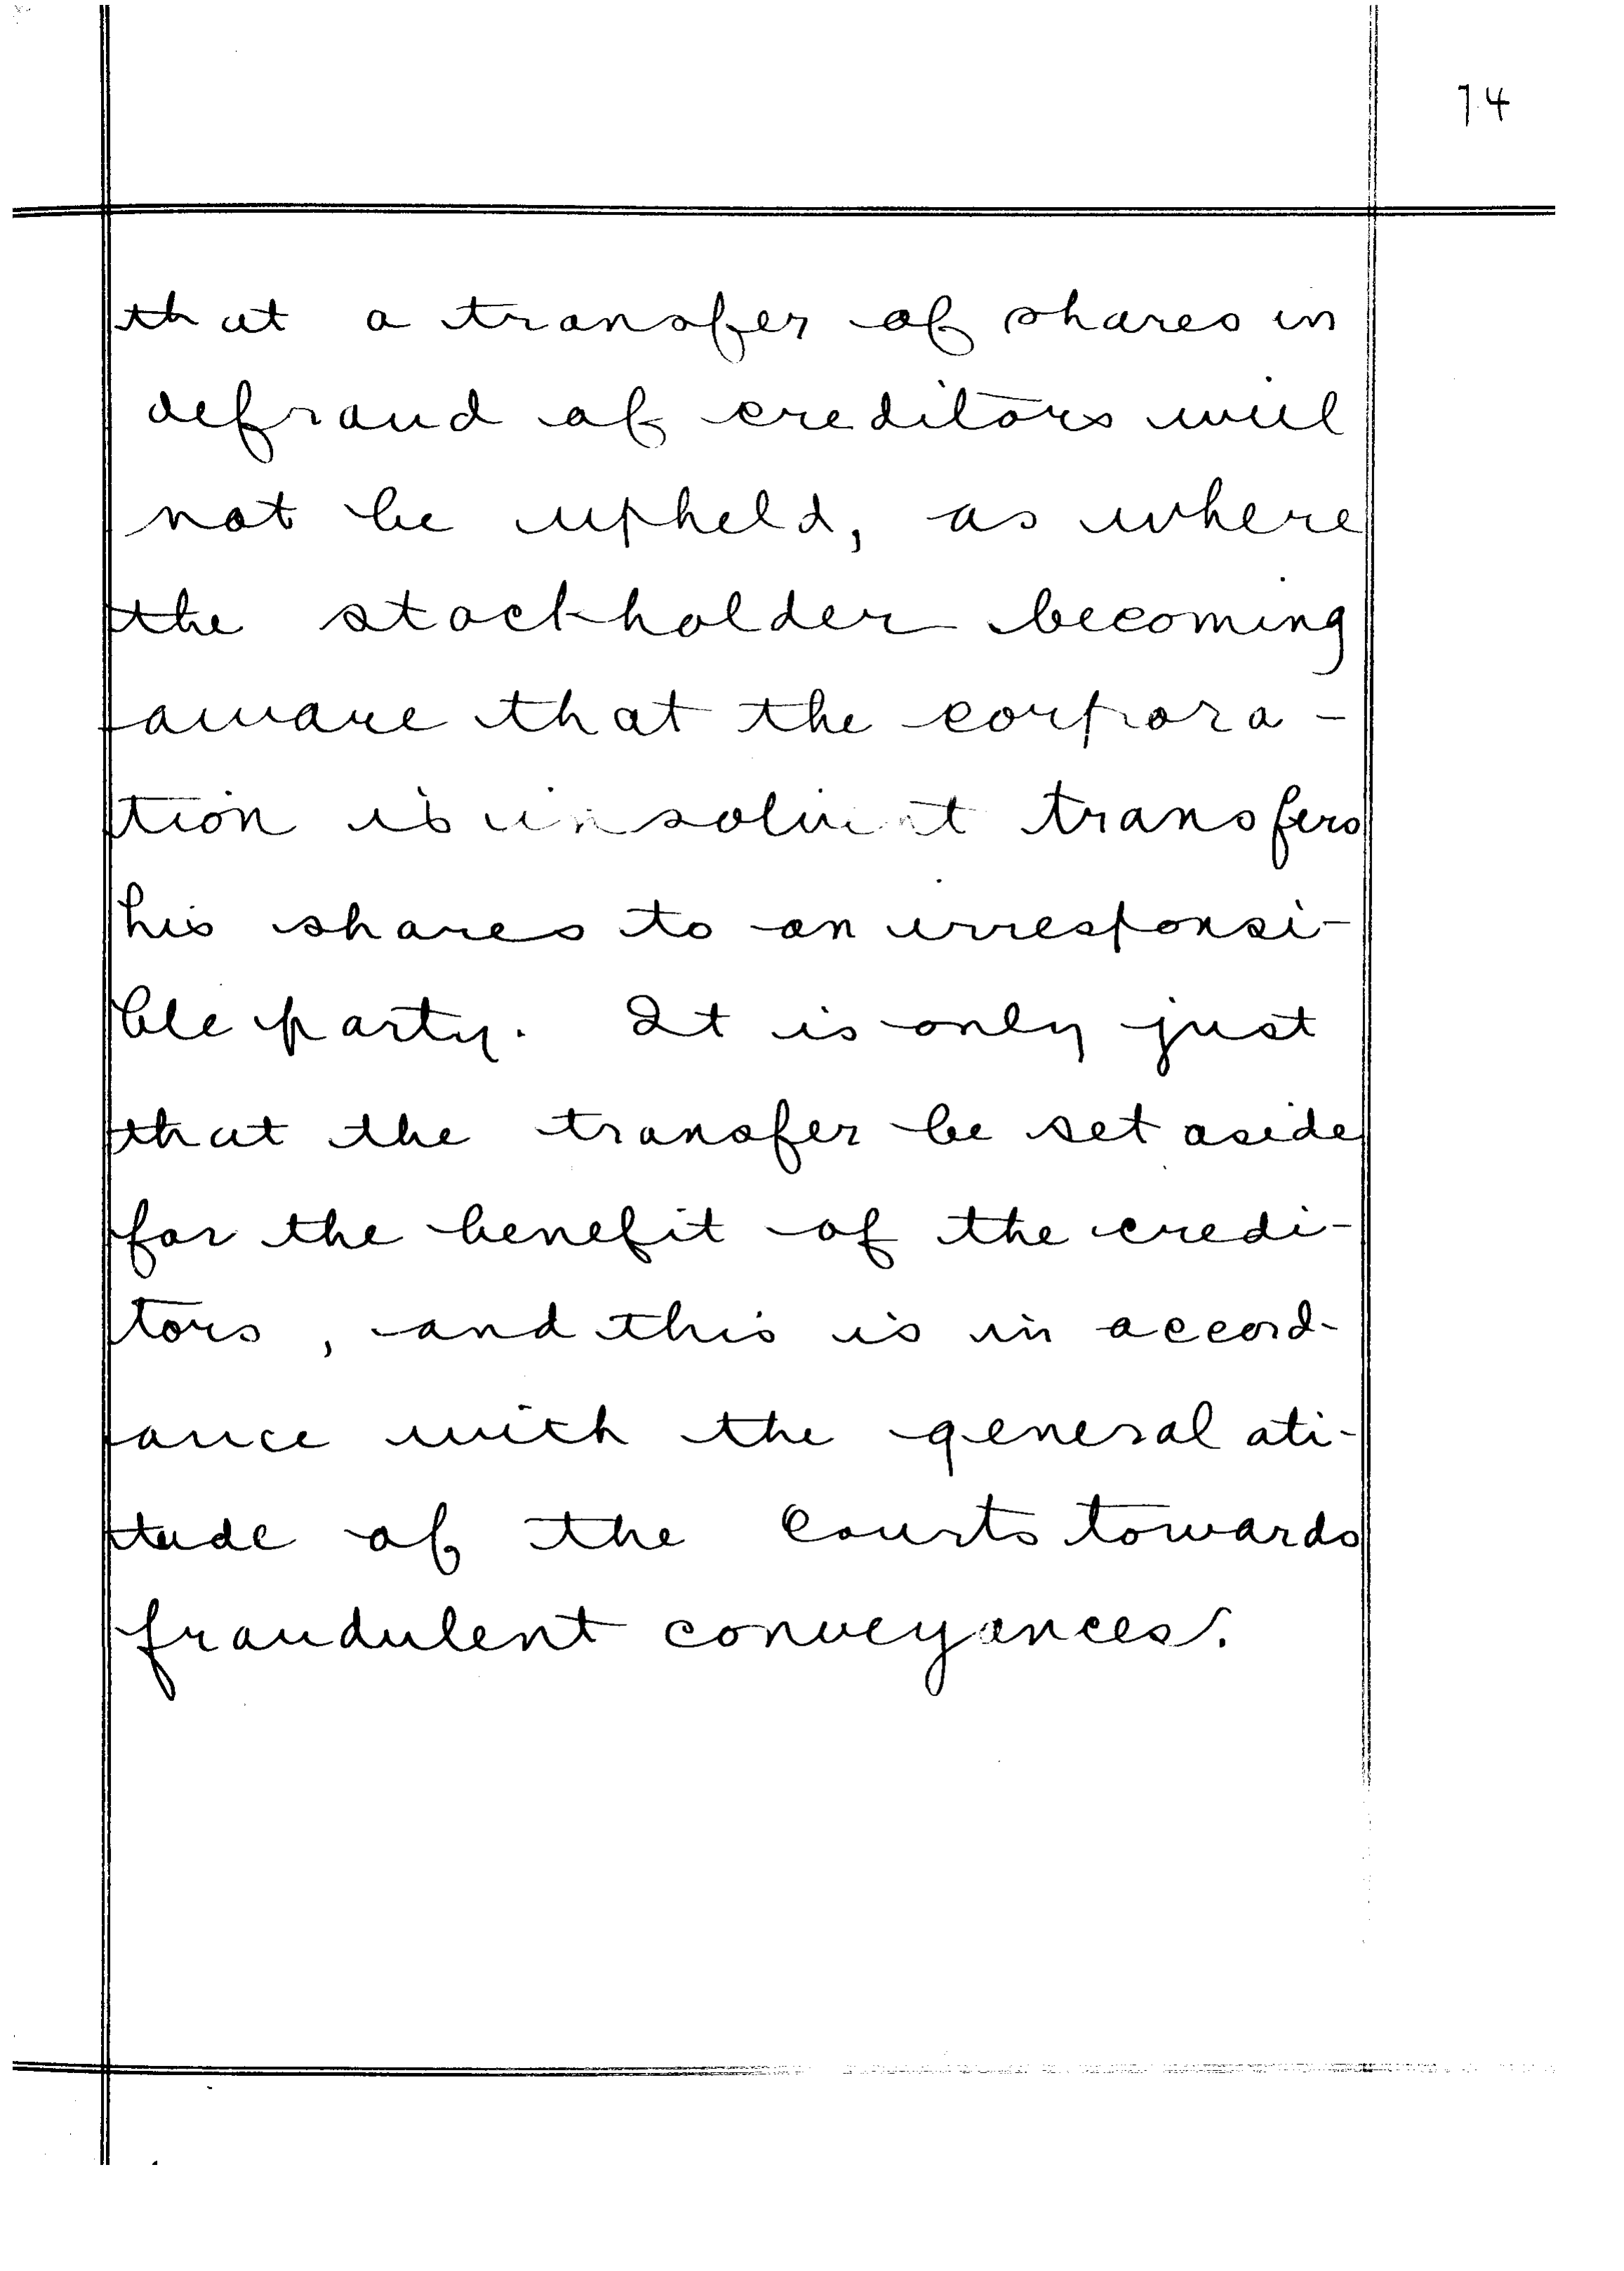 14
that a transfer of shares in
defraud of creditors will
not be upheld, as where
the stockholder becoming
aware that the corpora-
tion is insolvent transfers
his shares to an irresponsi-
ble party. It is only just
that the transfer be set aside
for the benefit of the credi-
tors, and this is in accord-
ance with the general ati-
tude of the Courts towards
fraudulent conveyances.